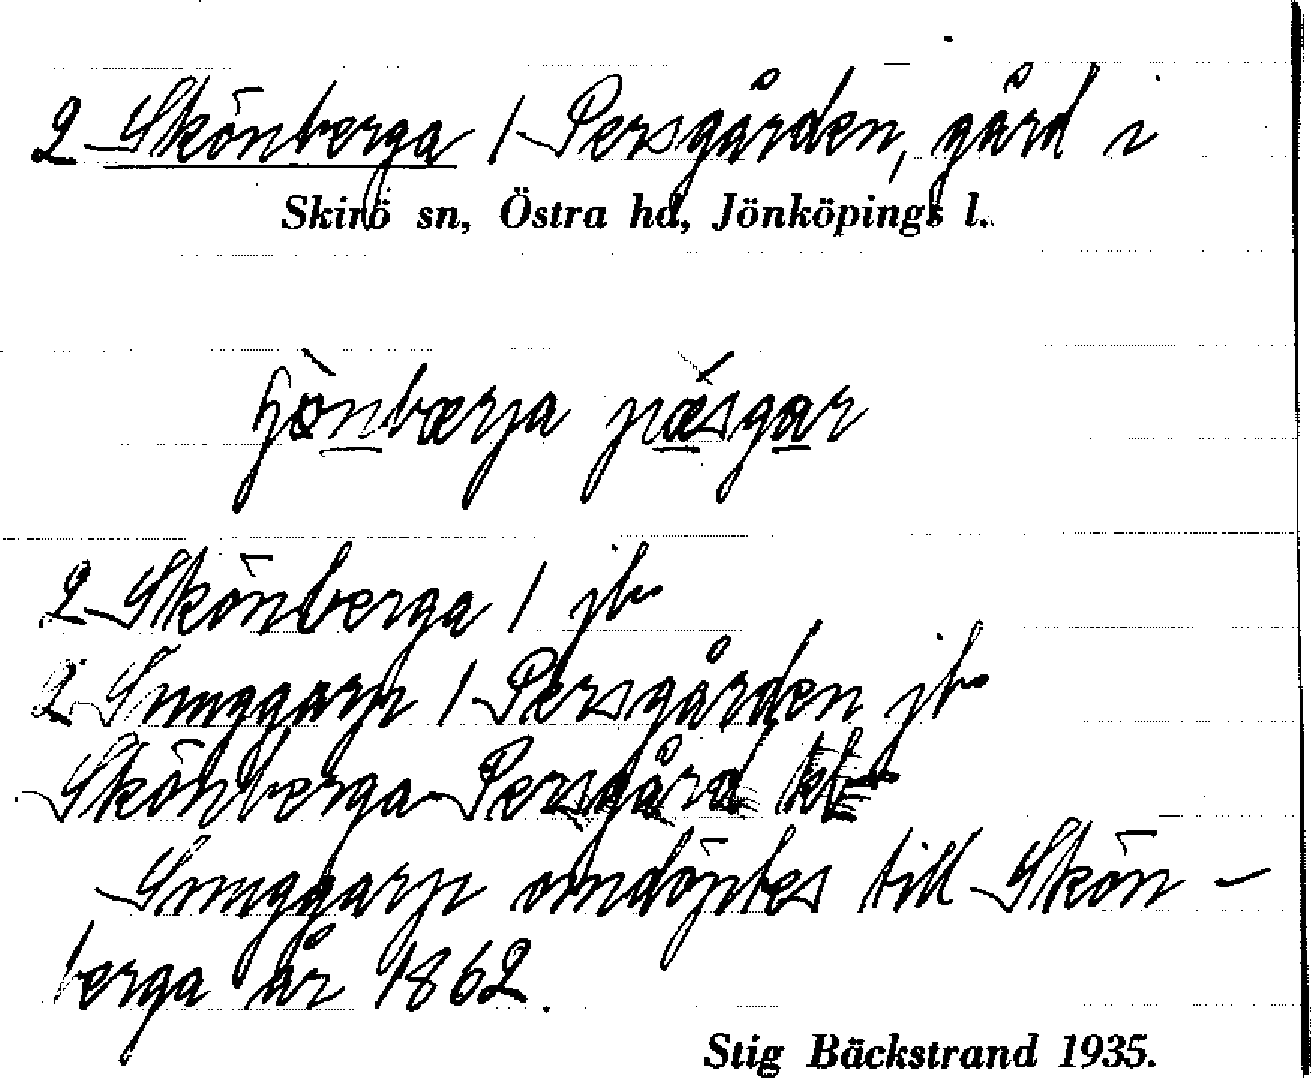 2 Skönberga 1 Persgården, gård i
Skirö sn, Östra hd, Jönköpings l.
pæsgar
2 Skönberga 1 jb
2 Snuggarp 1 Persgården jb
Skönberga Persgård
Snuggarp omdöptes till Skön-
berga år 1862.
Stig Bäckstrand 1935.